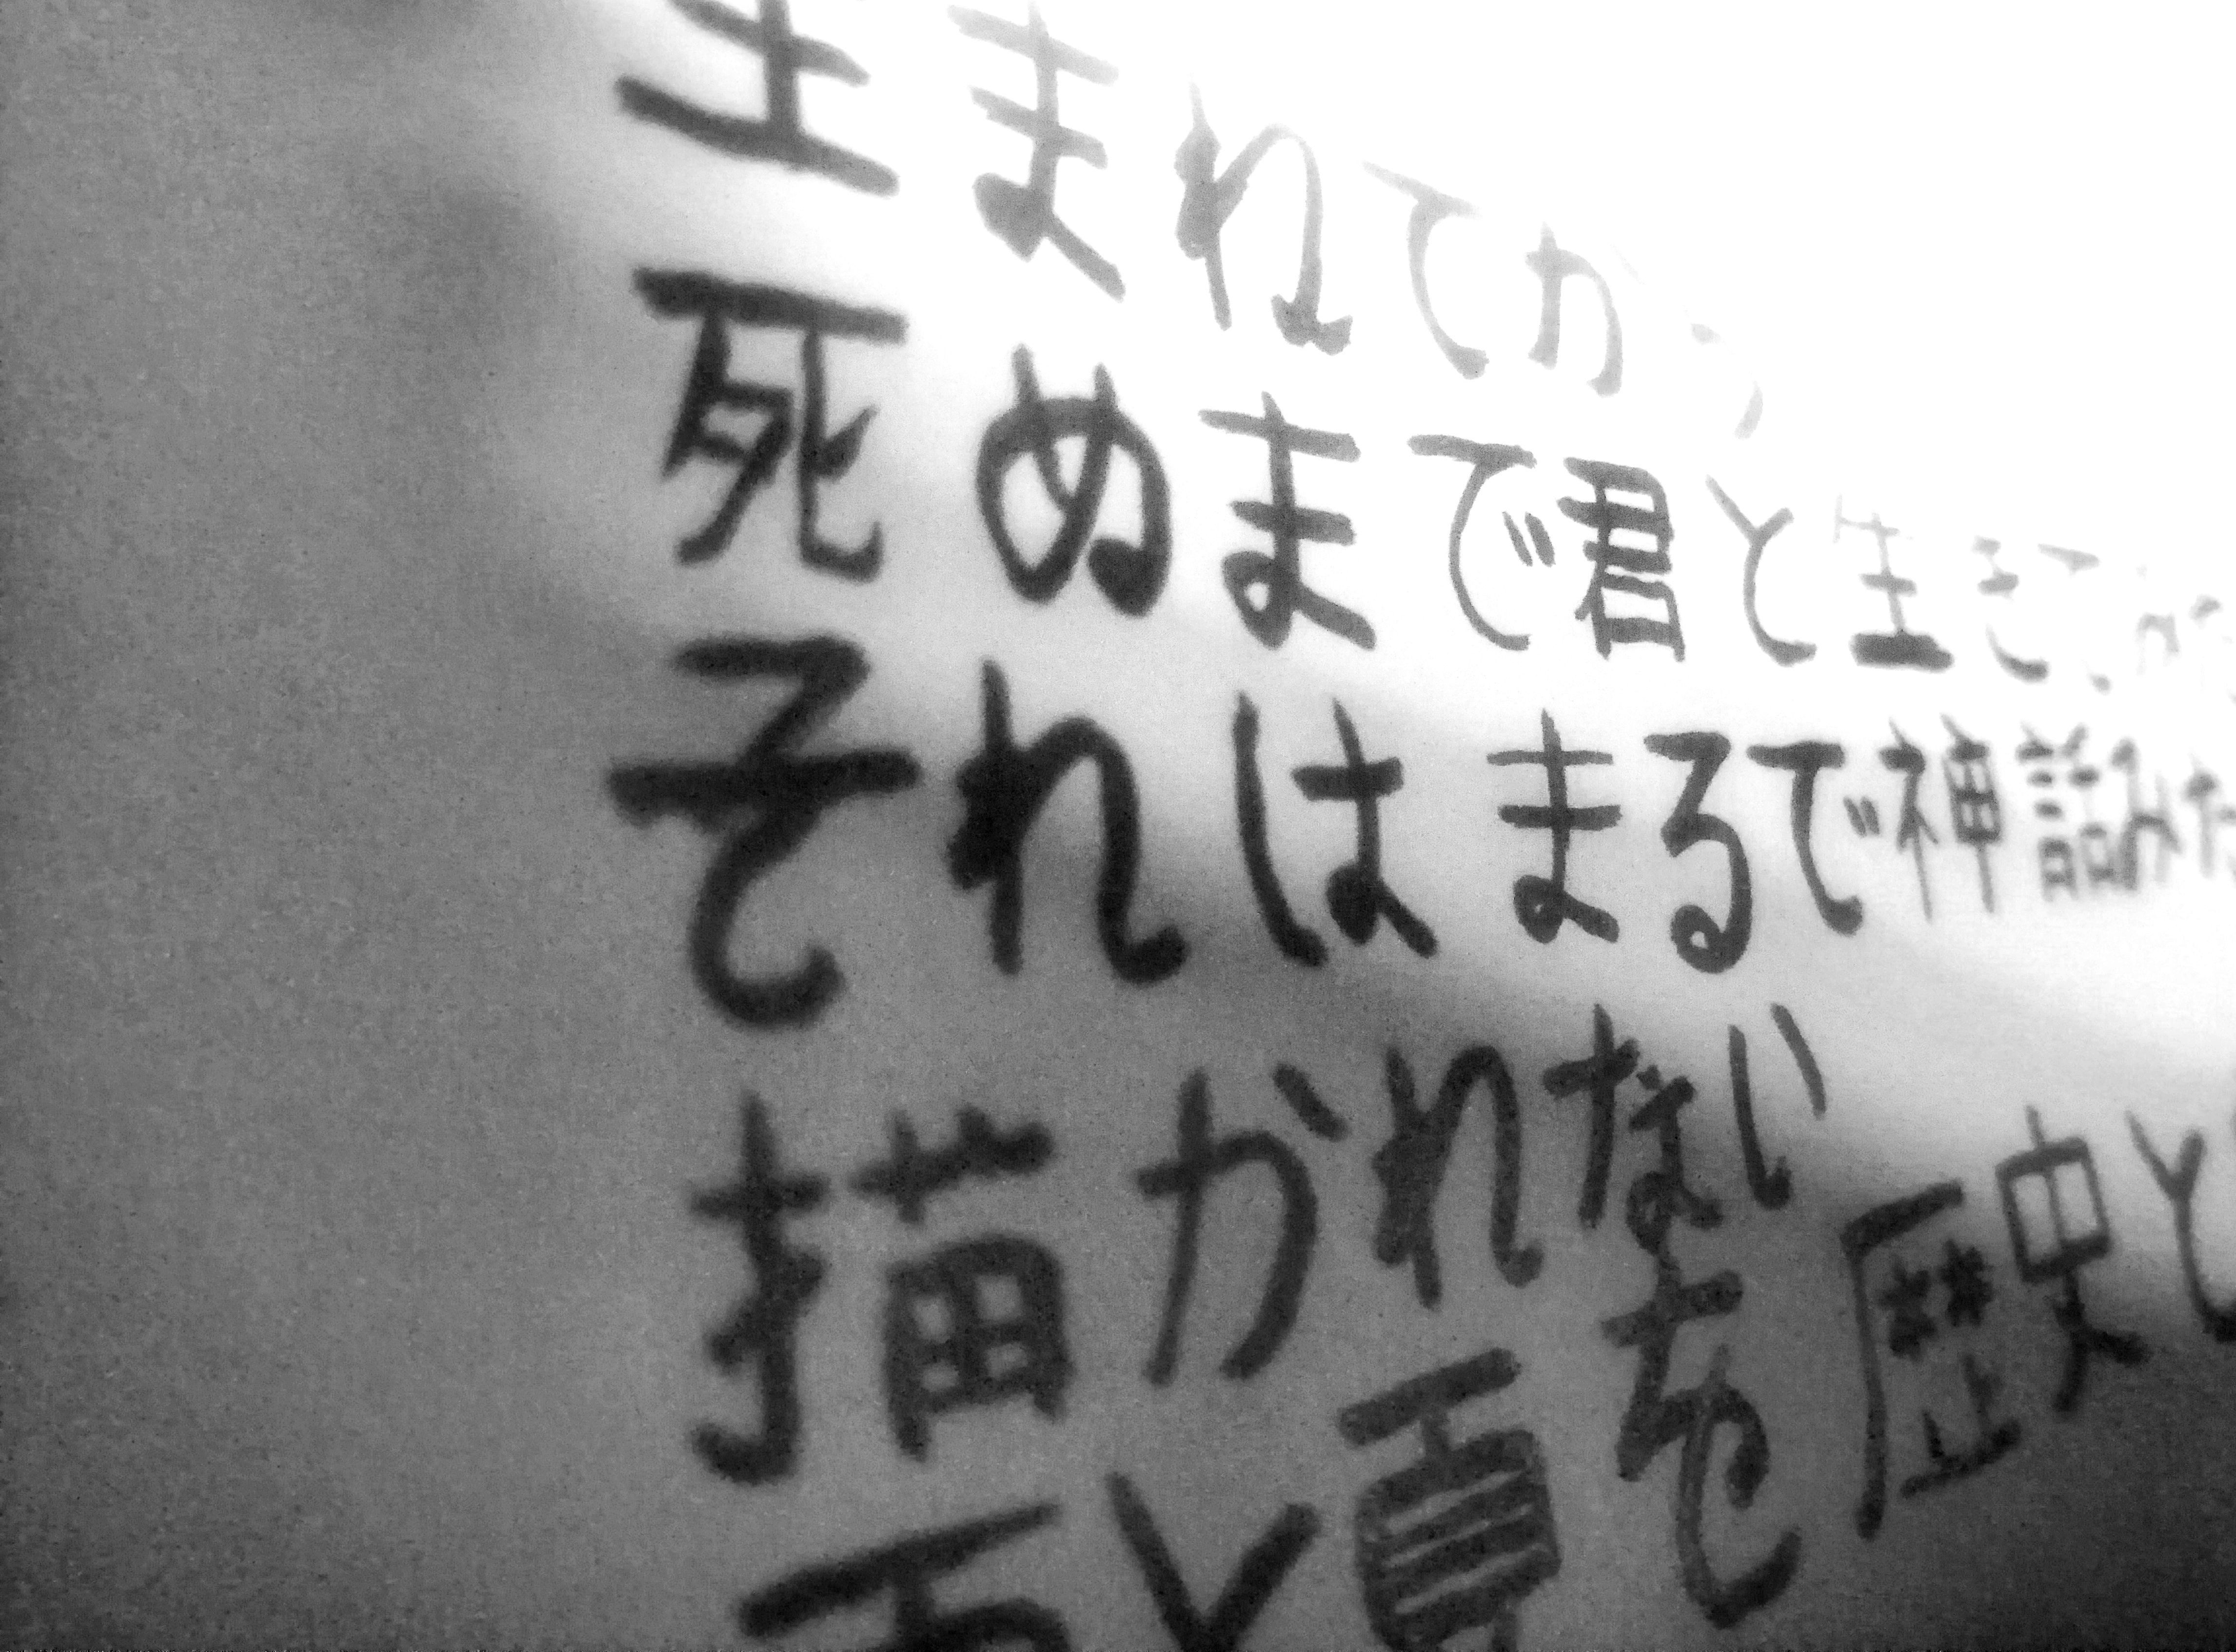 生まれてから
死ぬまで君と生きて
それはまるで神話みた
描かれない
頁と頁を歴史と